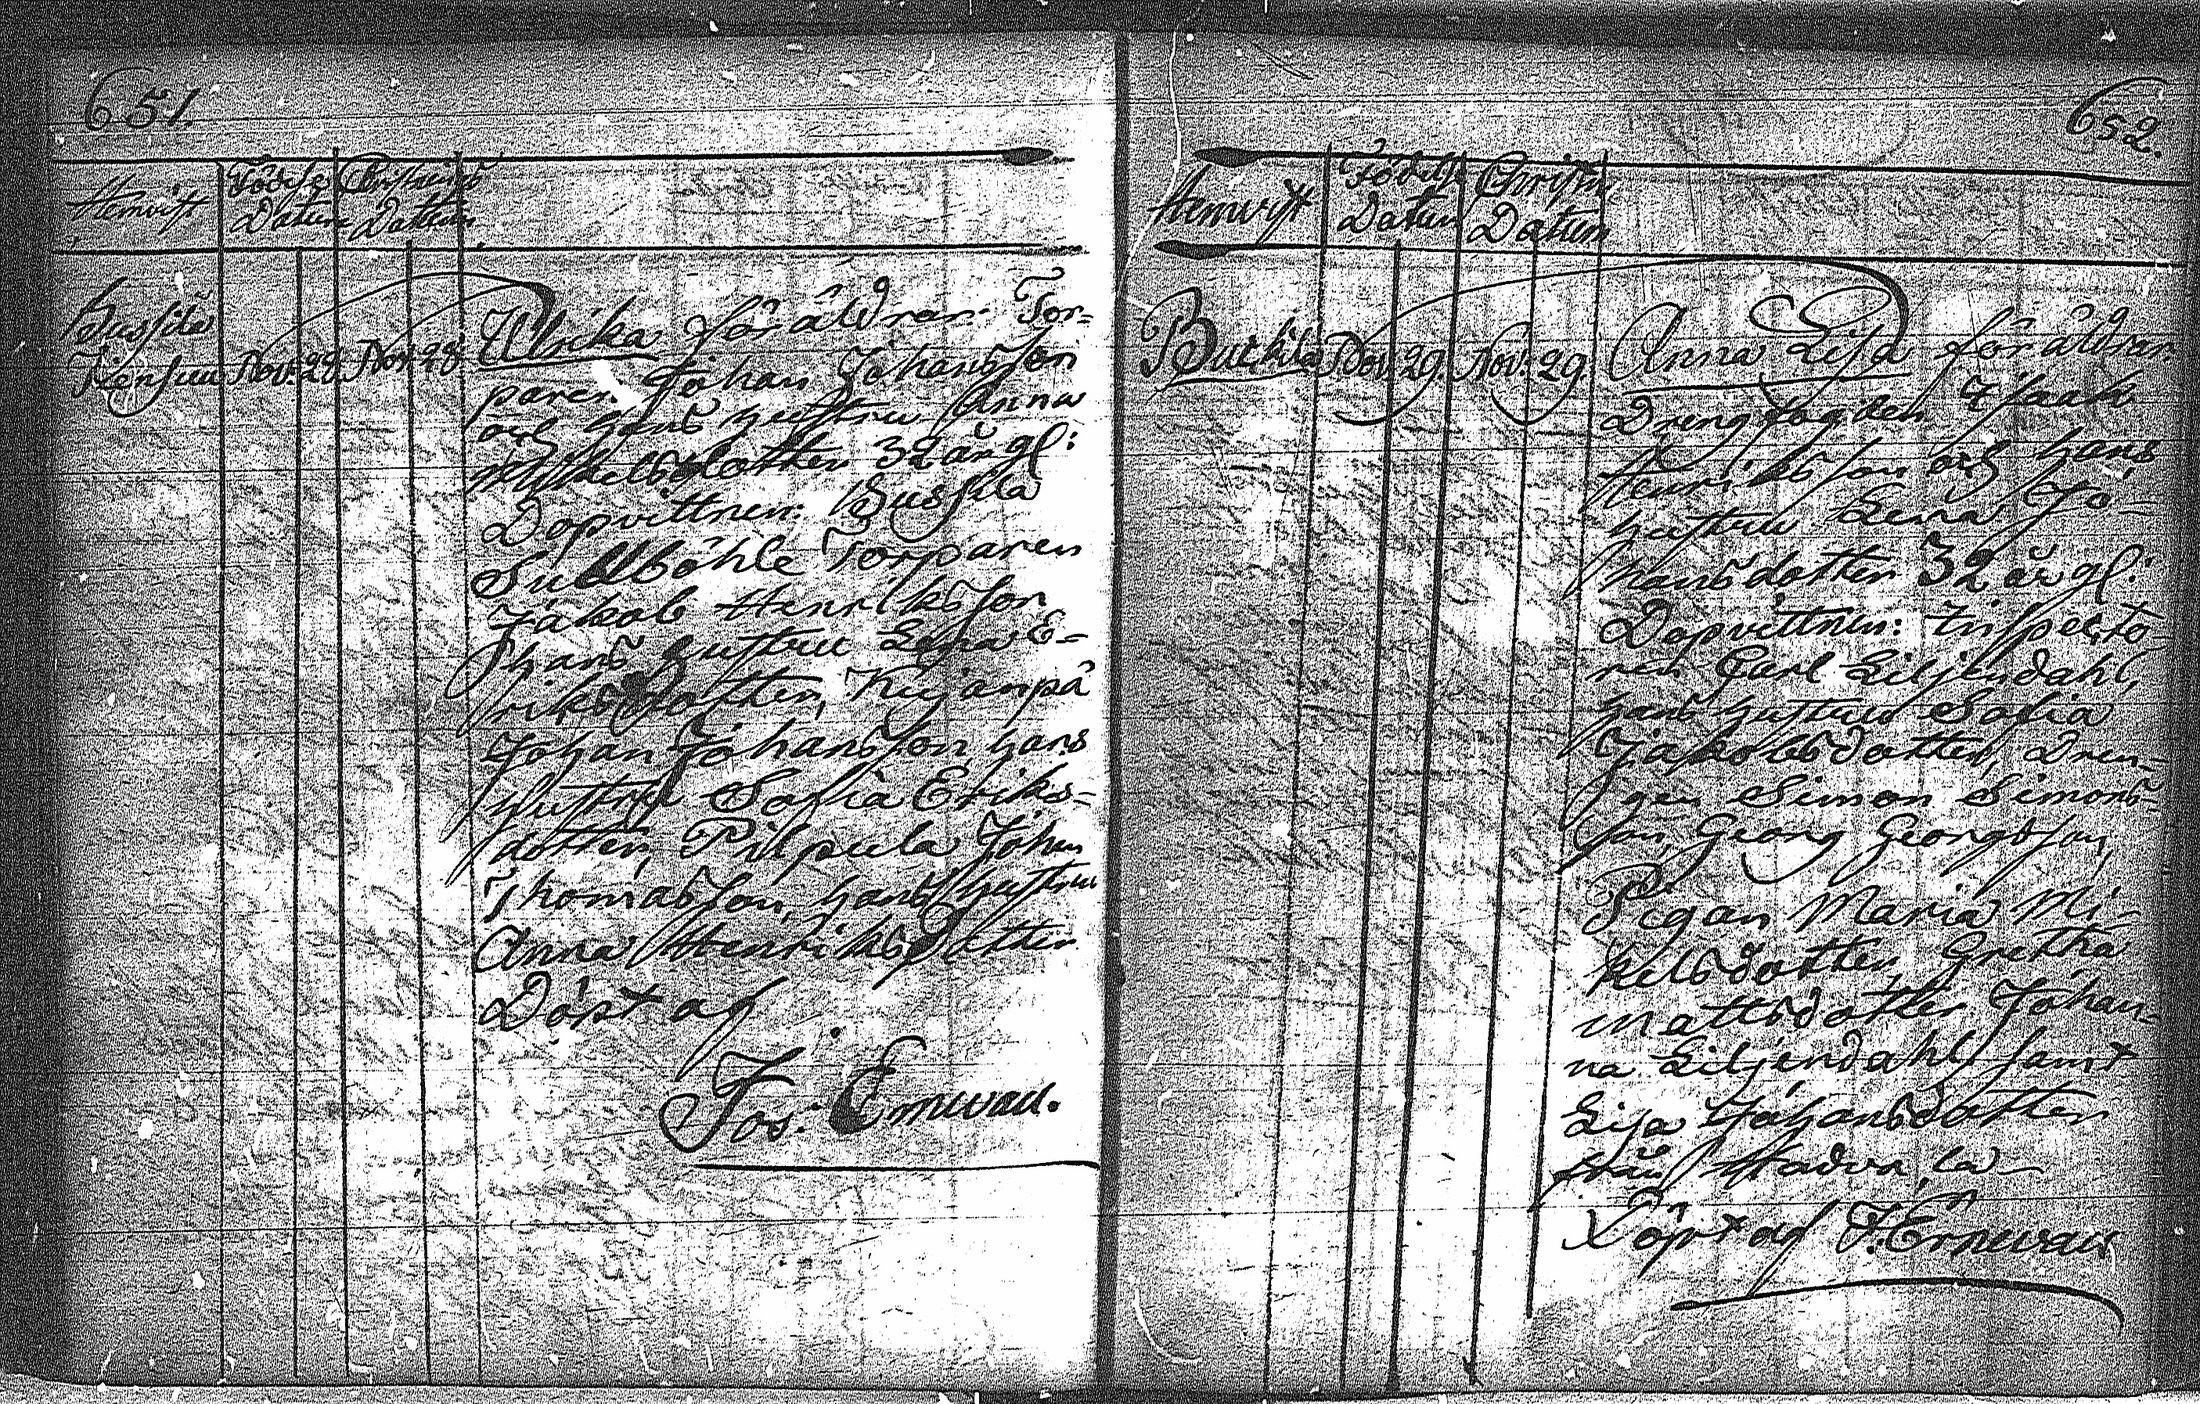 651.
Hemvist
Födelse Datum
Christnings Datum
Bussila
Nov: 28. Nov: 28
Ulrika föräldrar Tor=
paren Johan Johansson
och hans hustru Anna
Mikelsdotter 32 år gl:
Dopvittnen: Bussila
Sudlböhle Torparen
Jakob Henriksson
hans hustru Lisa E=
riksdotter, Nygånpå
Johan Johansson, hans
hustru Sofia Eriks=
dotter, Pilpula Johan
Thomasson, hans hustru
Anna Henriksdotter
Döpt af
Jos: Ernwall.
652.
Hemvist
Födelse Datum
Christn: Datum
Buckila Nov: 29. Nov: 29
Anna Lisa föräldrar
Drengfogden Isaak
Henriksson och hans
hustru Lena Jo=
hansdotter 32 år gl:
Dopvittnen: Inspecto=
ren Carl Liljendahl,
hans hustru Sofia
Jakobsdotter, Dren=
gen Simon Simons=
son, Georg Georgsson,
Pigan Maria Mi=
kelsdotter, Gretha
Mattsdotter Johan=
na Liljendahl samt
Lisa Johansdotter
från
Döpt af J. Ernwall